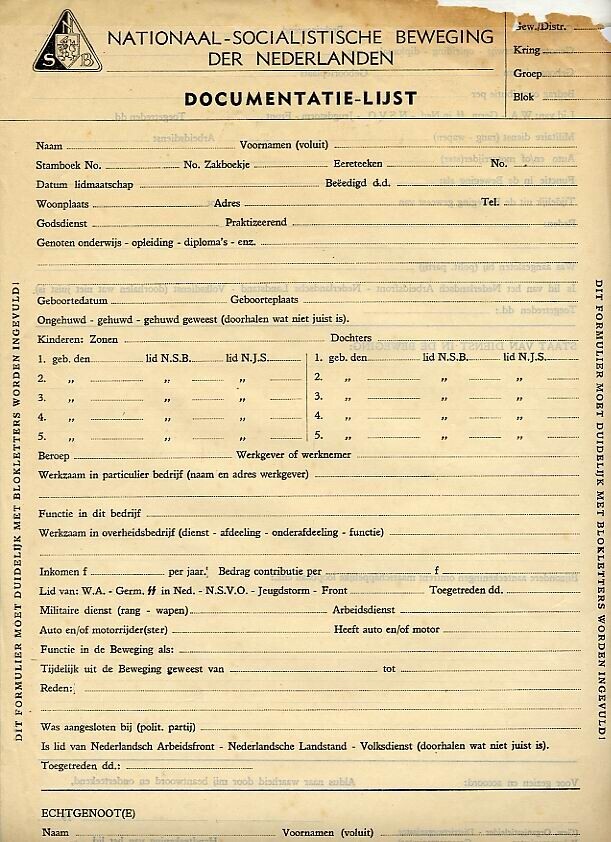 N S B
NATIONAAL-SOCIALISTISCHE BEWEGING
DER NEDERLANDEN
DOCUMENTATIE-LIJST
Gew./Distr.
Kring
Groep
Blok
Naam Voornamen (voluit)
Stamboek No. No. Zakboekje Eereteeken No.
Datum lidmaatschap Beëedigd d.d.
Woonplaats Adres Tel.
Godsdienst Praktizeerend
Genoten onderwijs - opleiding - diploma's - enz.
Geboortedatum Geboorteplaats
Ongehuwd - gehuwd - gehuwd geweest (doorhalen wat niet juist is).
Kinderen: Zonen Dochters
1. geb. den lid N.S.B. lid N.J.S. 1. geb. den lid N.S.B. lid N.J.S.
2. „ „ „ 2. „ „ „
3. „ „ „ 3. „ „ „
4. „ „ „ 4. „ „ „
5. „ „ „ 5. „ „ „
Beroep Werkgever of werknemer
Werkzaam in particulier bedrijf (naam en adres werkgever)
Functie in dit bedrijf
Werkzaam in overheidsbedrijf (dienst - afdeeling - onderafdeeling - functie)
Inkomen f per jaar. Bedrag contributie per f
Lid van: W.A. - Germ. ϟϟ in Ned. - N.S.V.O. - Jeugdstorm - Front Toegetreden dd.
Militaire dienst (rang - wapen) Arbeidsdienst
Auto en/of motorrijder(ster) Heeft auto en/of motor
Functie in de Beweging als:
Tijdelijk uit de Beweging geweest van tot
Reden:
Was aangesloten bij (polit. partij)
Is lid van Nederlandsch Arbeidsfront - Nederlandsche Landstand - Volksdienst (doorhalen wat niet juist is).
Toegetreden dd.:
ECHTGENOOT(E)
Naam Voornamen (voluit)
DIT FORMULIER MOET DUIDELIJK MET BLOKLETTERS WORDEN INGEVULD!
DIT FORMULIER MOET DUIDELIJK MET BLOKLETTERS WORDEN INGEVULD!